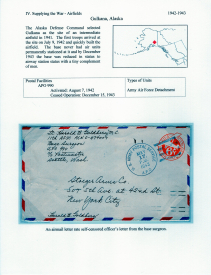 IV. Supplying the War - Airfields
1942-1943
Gulkana, Alaska
The Alaska Defense Command selected
Gulkana as the site of an intermediate
airfield in 1941. The first troops arrived at
the site on July 9, 1942 and quickly built the
airfield. The base never had air units
permanently stationed at it and by December
1943 the base was reduced in status to
airway station status with a tiny complement
of men.
Postal Facilities
APO 990
Activated: August 7, 1942
Closed Operation: December 15, 1943
Types of Units
Army Air Force Detachment
Base Surgeon
Seattle, Wash.
Steiger Arms Co
507 5th Ave at 42nd St
New York City
An airmail letter rate self-censored officer's letter from the base surgeon.